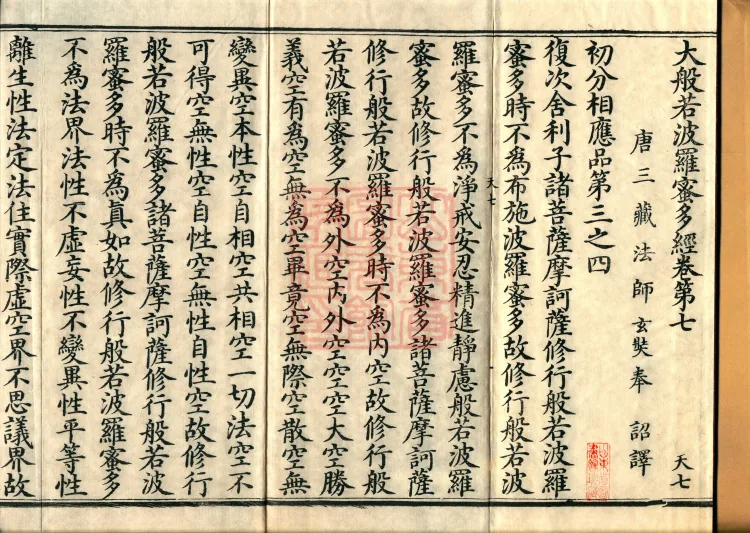 大般若波羅蜜多經卷第七
唐三藏法師玄奘奉 詔譯
天七
初分相應品第三之四
復次舍利子諸菩薩摩訶薩修行般若波羅
蜜多時不為布施波羅蜜多故修行般若波
天七
羅蜜多不為淨戒安忍精進靜慮般若波羅
蜜多故修行般若波羅蜜多諸菩薩摩訶薩
修行般若波羅蜜多時不為內空故修行般
若波羅蜜多不為外空內外空空空大空勝
義空有為空無為空畢竟空無際空散空無
變異空本性空自相空共相空一切法空不
可得空無性空自性空無性自性空故修行
般若波羅蜜多諸菩薩摩訶薩修行般若波
羅蜜多時不為真如故修行般若波羅蜜多
不為法界法性不虛妄性不變異性平等性
離生性法定法住實際虛空界不思議界故